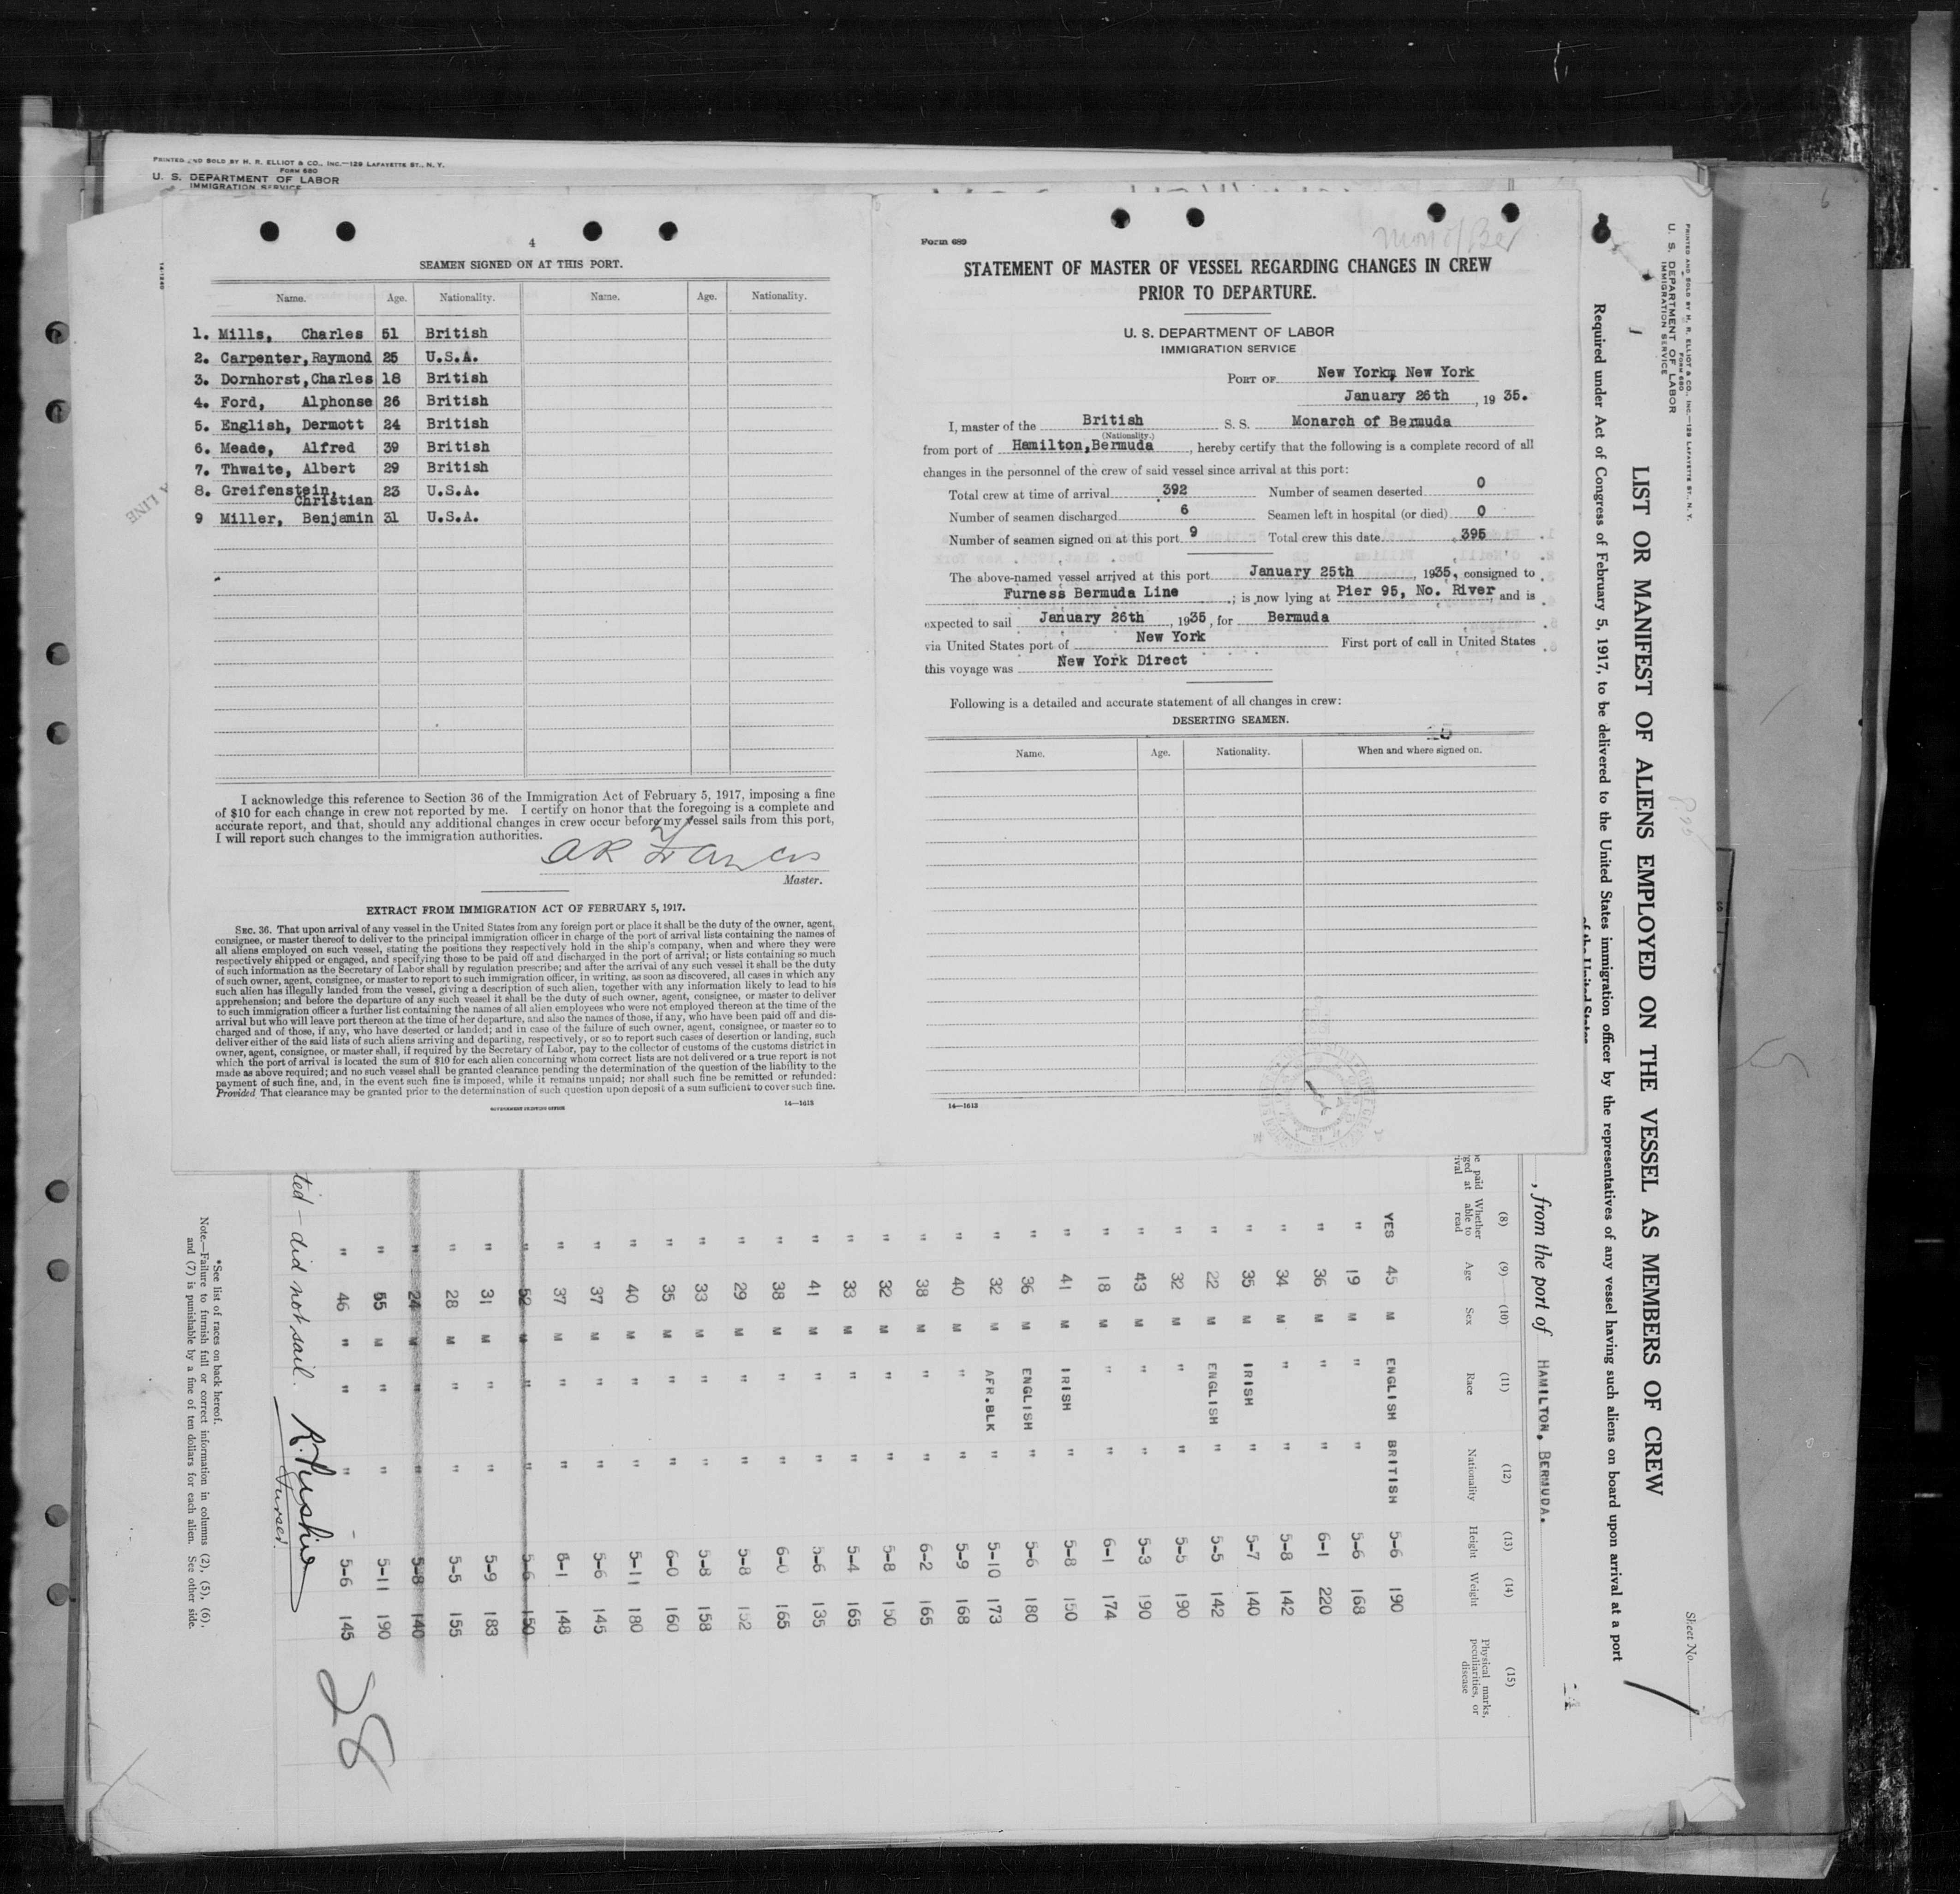 PRINTED AND SOLD BY H. R. ELLIOT & CO., INC.—129 LAFAYETTE ST., N. Y.
FORM 680
U. S. DEPARTMENT OF LABOR
IMMIGRATION SERVICE
4
SEAMEN SIGNED ON AT THIS PORT.
Name. Age. Nationality. Name. Age. Nationality.
1. Mills, Charles 51 British
2. Carpenter, Raymond 25 U.S.A.
3. Dornhorst, Charles 18 British
4. Ford, Alphonse 26 British
5. English, Dermott 24 British
6. Meade, Alfred 39 British
7. Thwaite, Albert 29 British
8. Greifenstein, Christian 23 U.S.A.
9 Miller, Benjamin 31 U.S.A.
A LINE
I acknowledge this reference to Section 36 of the Immigration Act of February 5, 1917, imposing a fine
of $10 for each change in crew not reported by me. I certify on honor that the foregoing is a complete and
accurate report, and that, should any additional changes in crew occur before my vessel sails from this port,
I will report such changes to the immigration authorities.
A R Francis
Master.
EXTRACT FROM IMMIGRATION ACT OF FEBRUARY 5, 1917.
SEC. 36. That upon arrival of any vessel in the United States from any foreign port or place it shall be the duty of the owner, agent,
consignee, or master thereof to deliver to the principal immigration officer in charge of the port of arrival lists containing the names of
all aliens employed on such vessel, stating the positions they respectively hold in the ship's company, when and where they were
respectively shipped or engaged, and specifying those to be paid off and discharged in the port of arrival; or lists containing so much
of such information as the Secretary of Labor shall by regulation prescribe; and after the arrival of any such vessel it shall be the duty
of such owner, agent, consignee, or master to report to such immigration officer, in writing, as soon as discovered, all cases in which any
such alien has illegally landed from the vessel, giving a description of such alien, together with any information likely to lead to his
apprehension; and before the departure of any such vessel it shall be the duty of such owner, agent, consignee, or master to deliver
to such immigration officer a further list containing the names of all alien employees who were not employed thereon at the time of the
arrival but who will leave port thereon at the time of her departure, and also the names of those, if any, who have been paid off and dis-
charged and of those, if any, who have deserted or landed; and in case of the failure of such owner, agent, consignee, or master so to
deliver either of the said lists of such aliens arriving and departing, respectively, or so to report such cases of desertion or landing, such
owner, agent, consignee, or master shall, if required by the Secretary of Labor, pay to the collector of customs of the customs district in
which the port of arrival is located the sum of $10 for each alien concerning whom correct lists are not delivered or a true report is not
made as above required; and no such vessel shall be granted clearance pending the determination of the question of the liability to the
payment of such fine, and, in the event such fine is imposed, while it remains unpaid; nor shall such fine be remitted or refunded:
Provided That clearance may be granted prior to the determination of such question upon deposit of a sum sufficient to cover such fine.
GOVERNMENT PRINTING OFFICE 14—1613
Form 689
Mon of Ber
STATEMENT OF MASTER OF VESSEL REGARDING CHANGES IN CREW
PRIOR TO DEPARTURE.
U. S. DEPARTMENT OF LABOR
IMMIGRATION SERVICE
PORT OF New York, New York
January 26th, 1935.
I, master of the British S. S. Monarch of Bermuda
(Nationality.)
from port of Hamilton, Bermuda, hereby certify that the following is a complete record of all
changes in the personnel of the crew of said vessel since arrival at this port:
Total crew at time of arrival 392 Number of seamen deserted 0
Number of seamen discharged 6 Seamen left in hospital (or died) 0
Number of seamen signed on at this port 9 Total crew this date 395
The above-named vessel arrived at this port January 25th, 1935, consigned to
Furness Bermuda Line; is now lying at Pier 95, No. River and is
expected to sail January 26th, 1935, for Bermuda
via United States port of New York First port of call in United States
this voyage was New York Direct
Following is a detailed and accurate statement of all changes in crew:
DESERTING SEAMEN.
Name. Age. Nationality. When and where signed on.
14—1613
PRINTED AND SOLD BY H. R. ELLIOT & CO., INC.—129 LAFAYETTE ST., N. Y.
FORM 680
U. S. DEPARTMENT OF LABOR
IMMIGRATION SERVICE
Sheet No.
LIST OR MANIFEST OF ALIENS EMPLOYED ON THE VESSEL AS MEMBERS OF CREW
Required under Act of Congress of February 5, 1917, to be delivered to the United States immigration officer by the representatives of any vessel having such aliens on board upon arrival at a port
of the United States
, from the port of HAMILTON, BERMUDA.
(8) (9) (10) (11) (12) (13) (14) (15)
Whether able to read Age Sex Race Nationality Height Weight Physical marks, peculiarities, or disease
YES 45 M ENGLISH BRITISH 5-6 190
" 19 M " " 5-6 168
" 36 M " " 6-1 220
" 34 M " " 5-8 142
" 35 M IRISH " 5-7 140
" 22 M ENGLISH " 5-5 142
" 32 M " " 5-5 190
" 43 M " " 5-3 190
" 18 M " " 6-1 174
" 41 M IRISH " 5-8 150
" 36 M ENGLISH " 5-6 180
" 32 M AFR.BLK " 5-10 173
" 40 M " " 5-9 168
" 38 M " " 6-2 165
" 32 M " " 5-8 150
" 33 M " " 5-4 165
" 41 M " " 5-6 135
" 38 M " " 6-0 165
" 29 M " " 5-8 152
" 33 M " " 5-8 158
" 35 M " " 6-0 160
" 40 M " " 5-11 180
" 37 M " " 5-6 145
" 37 M " " 148
" 52 M " " 5-6 150
" 31 M " " 5-9 183
" 28 M " " 5-5 155
" 24 M " " 5-8 140
" 55 M " " 5-11 190
" 46 " " " 5-6 145
ted - did not sail.
Purser.
28
*See list of races on back hereof.
Note.—Failure to furnish full or correct information in columns (2), (5), (6),
and (7) is punishable by a fine of ten dollars for each alien. See other side.